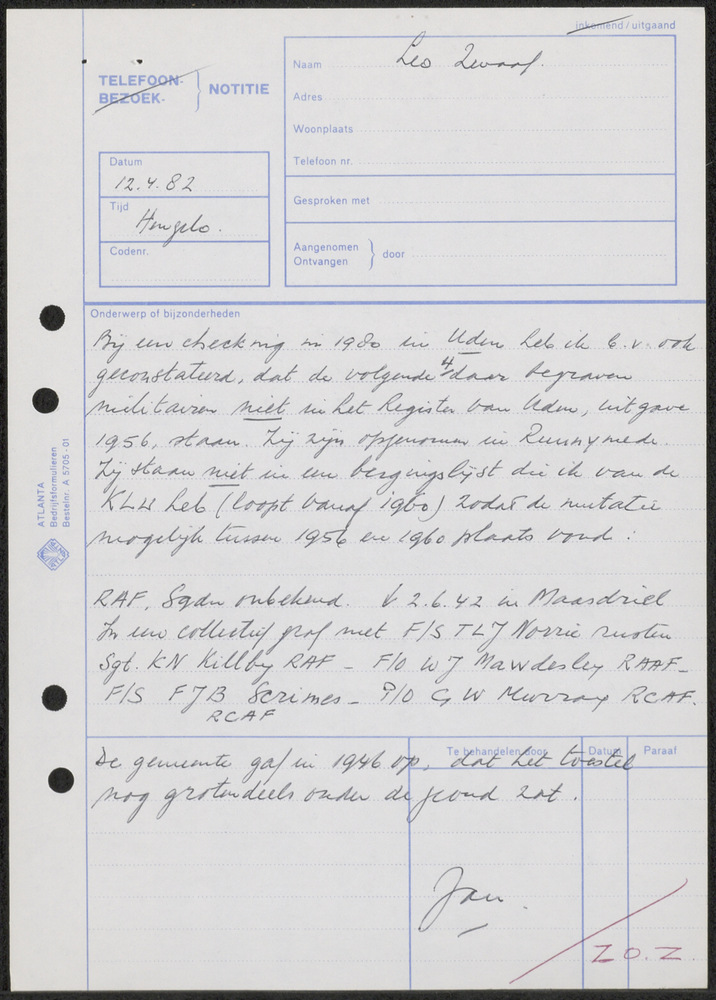 inkomend / uitgaand
TELEFOON-
BEZOEK-
NOTITIE
Naam Leo Zwaaf.
Adres
Woonplaats
Telefoon nr.
Datum
12.4.82
Tijd
Hengelo.
Codenr.
Gesproken met
Aangenomen
Ontvangen
door
Onderwerp of bijzonderheden
Bij een checking in 1980 in Uden heb ik b.v. ook
geconstateerd, dat de volgende 4 daar begraven
militairen niet in het Register van Uden, uitgave
1956, staan. Zij zijn opgenomen in Runnymede.
Zij staan niet in een bergingslijst die ik van de
KLu heb (loopt vanaf 1960) zodat de mutatie
mogelijk tussen 1956 en 1960 plaats vond :
RAF, Sqdn onbekend. 2.6.42 in Maasdriel
In een collectief graf met F/S TLJ Norrie rusten
Sgt. KN Killby RAF - F/O WJ Mawdesley RAAF -
F/S FJB Scrimes - P/O G W Murray RCAF.
RCAF
De gemeente gaf in 1946 op, dat het toestel
nog grotendeels onder de grond zat.
Te behandelen door
Datum
Paraaf
Jan
Z.O.Z.
ATLANTA
Bedrijfsformulieren
Bestelnr. A 5705-01